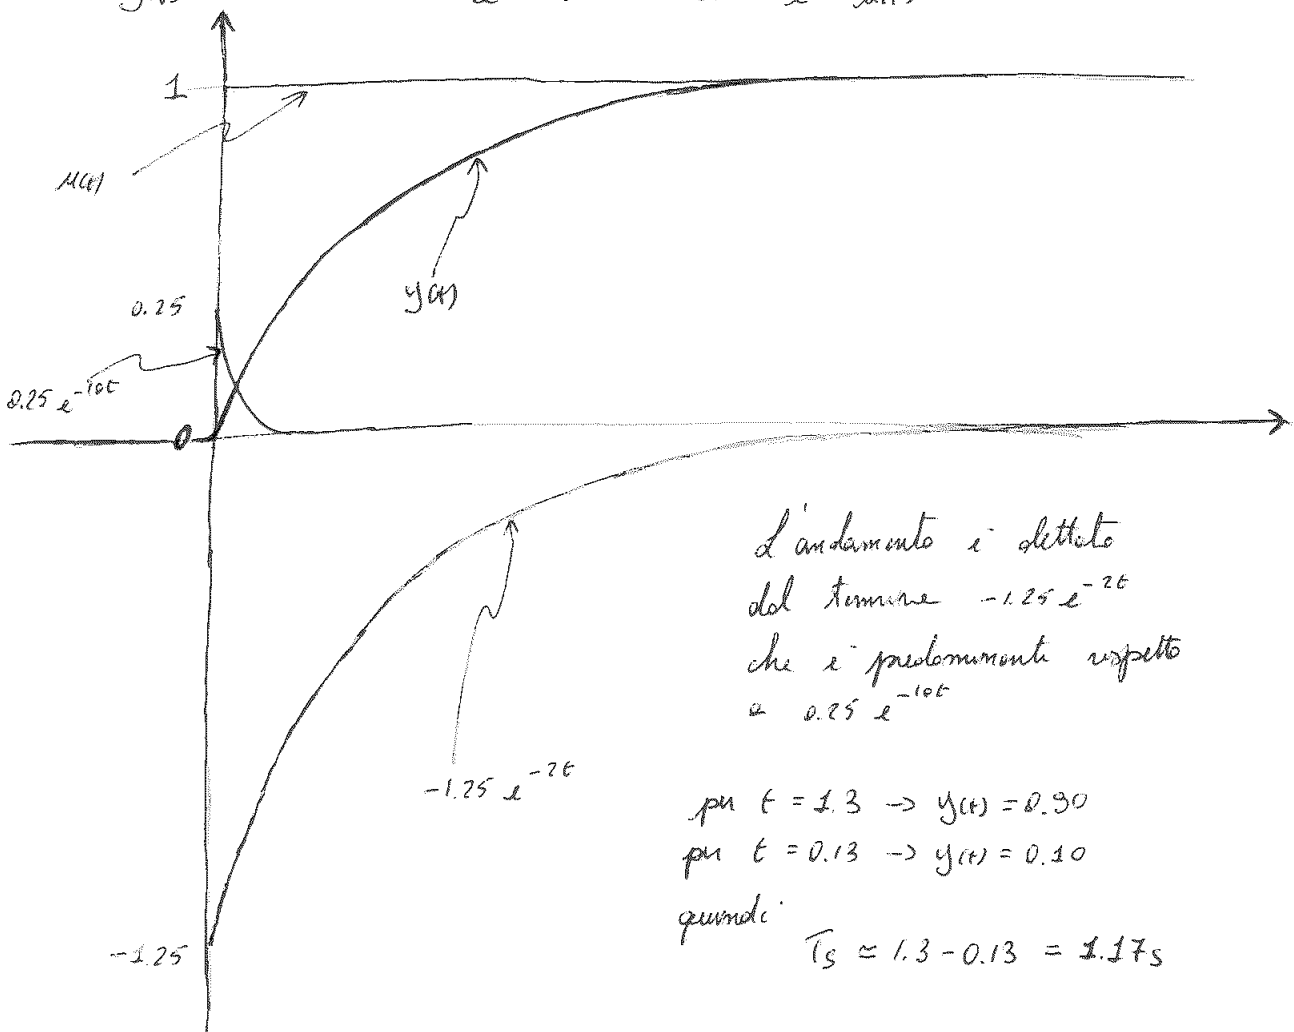 1
u(t)
y(t)
0.25
0.25 e^-10t
0
L'andamento è dettato
dal termine -1.25 e^-2t
che è predominante rispetto
a 0.25 e^-10t
-1.25 e^-2t
per t = 1.3 -> y(t) = 0.90
per t = 0.13 -> y(t) = 0.10
quindi
-1.25
Ts ≃ 1.3 - 0.13 = 1.17s